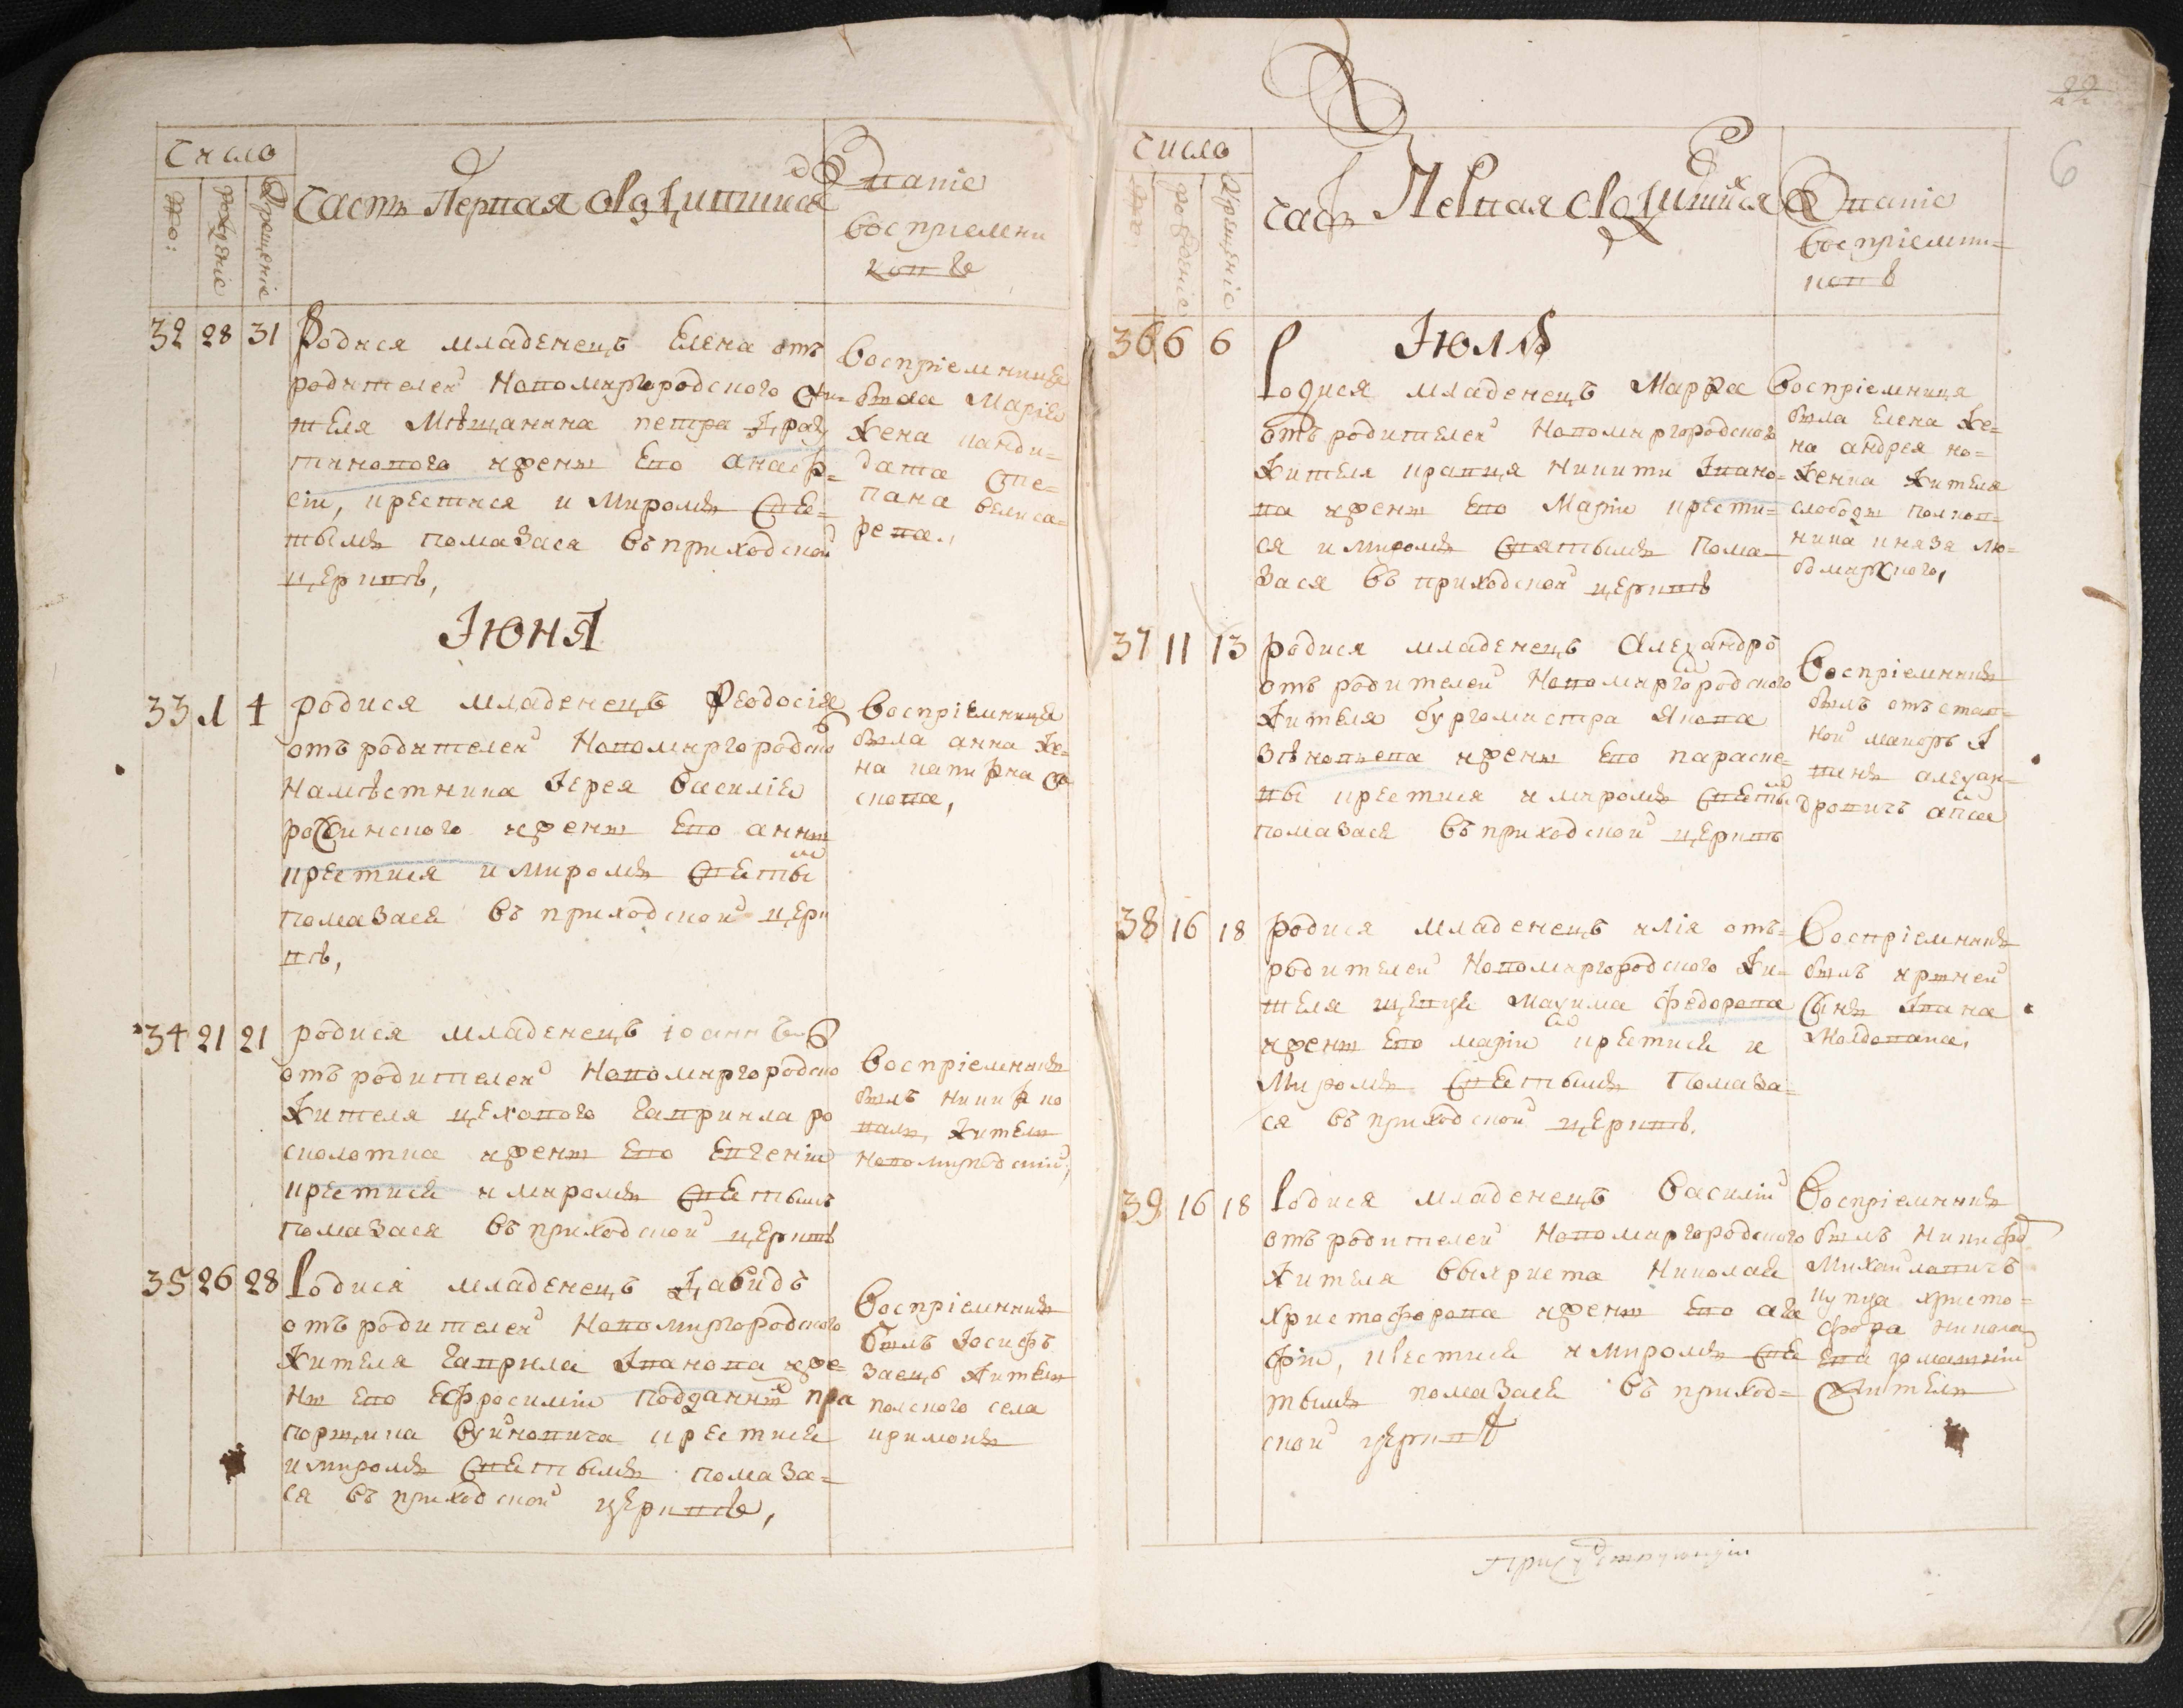 Число
Что:
рождение
Крещение
Часть Первая о Родившихся
Звание
восприемни
ков
32 28 31 Родися младенецъ Елена отъ
родителей Новомиргородского жи=
теля Мѣщанина петра
жены его анаста=
сіи, крестися и Миромъ Свя=
тымъ помазася въ приходской
церквѣ,
восприемница
была Марія
жена канди=
дата Сте=
пана велиса=
рева.,
Іюня
33 1 4 родися младенецъ Феодосія
отъ родителей Новомиргородско
Намѣстника Іерея Василія
жены его анны
крестися и миромъ Святы
помазася въ приходской церк
квѣ,
восприемница
была анна же=
на
скова,
34 21 21 родися младенецъ іоаннъ
отъ родителей Новомиргородско
жителя цехового Гавриила ро
сколотка жены его Евгеніи
крестися и миромъ Святымъ
помазася въ приходской церквѣ
восприемникъ
былъ
жители
Новомиргодскій,
35 26 28 Родися младенецъ Давидъ
отъ родителей Новомиргородского
жителя Гаврила Іванова же=
ны его Ефросиміи подданній пра
порщика крестися
и миромъ Святымъ помаза=
ся въ приходской церквѣ,
восприемникъ
былъ Іосифъ
заецъ житель
полского села
кримокъ
22
6
Число
Что:
рождение
Крещение
часть Первая о Родившихся
Звание
восприемни=
ковъ
Іюля
36 6 6 Родися младенецъ Марфа
отъ родителей Новомиргородского
жителя кравця Никити Івано=
ва жены его Маріи крести=
ся и миромъ Святымъ Пома=
зася въ приходской церквѣ
восприемниця
была Елена же=
на андрея но=
женка жителя
слободы полков=
ника князя Лю=
бомирского,
37 11 13 родися младенецъ Алеѯандръ
отъ родителей Новомиргородского
жителя бургомистра Якова
жены его параске=
вы крестися и миромъ Святы
помазася въ приходской церквѣ
восприемникъ
былъ отъстав=
ной маиоръ
алеѯан=
дровичъ
38 16 18 родися младенецъ илія отъ=
родителей Новомиргородского жи=
теля шевця Маѯима федорова
жены его маріи крестися и
Миромъ Святымъ Помаза=
ся въ приходской церквѣ.
восприемникъ
былъ
Сынъ Івана
Молдована,
39 16 18 Родися младенецъ Василій
отъ родителей Новомиргородского
жителя Николая
христофорова жены его ага
фіи, крестися и миромъ Свя
тымъ помазася въ приход=
ской церквѣ
восприемникъ
былъ Никифо
Михайловичъ
купца христо=
фора никола
ева
житель